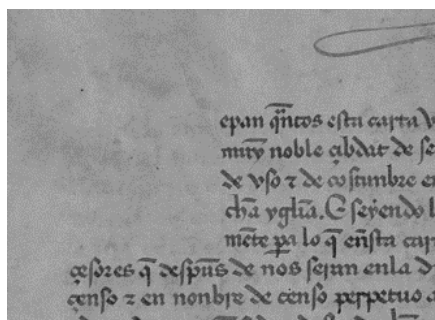 epan q̃ntos esta carta v
muy noble çibdat de se
de vso τ de costunbre en
cħa yglīa. E seyendo l
mēte pa lo q̃ eñsta car
çesores q̃ despũs de nos seran enla d
çenso τ en nonbre de çenso perpetuo a